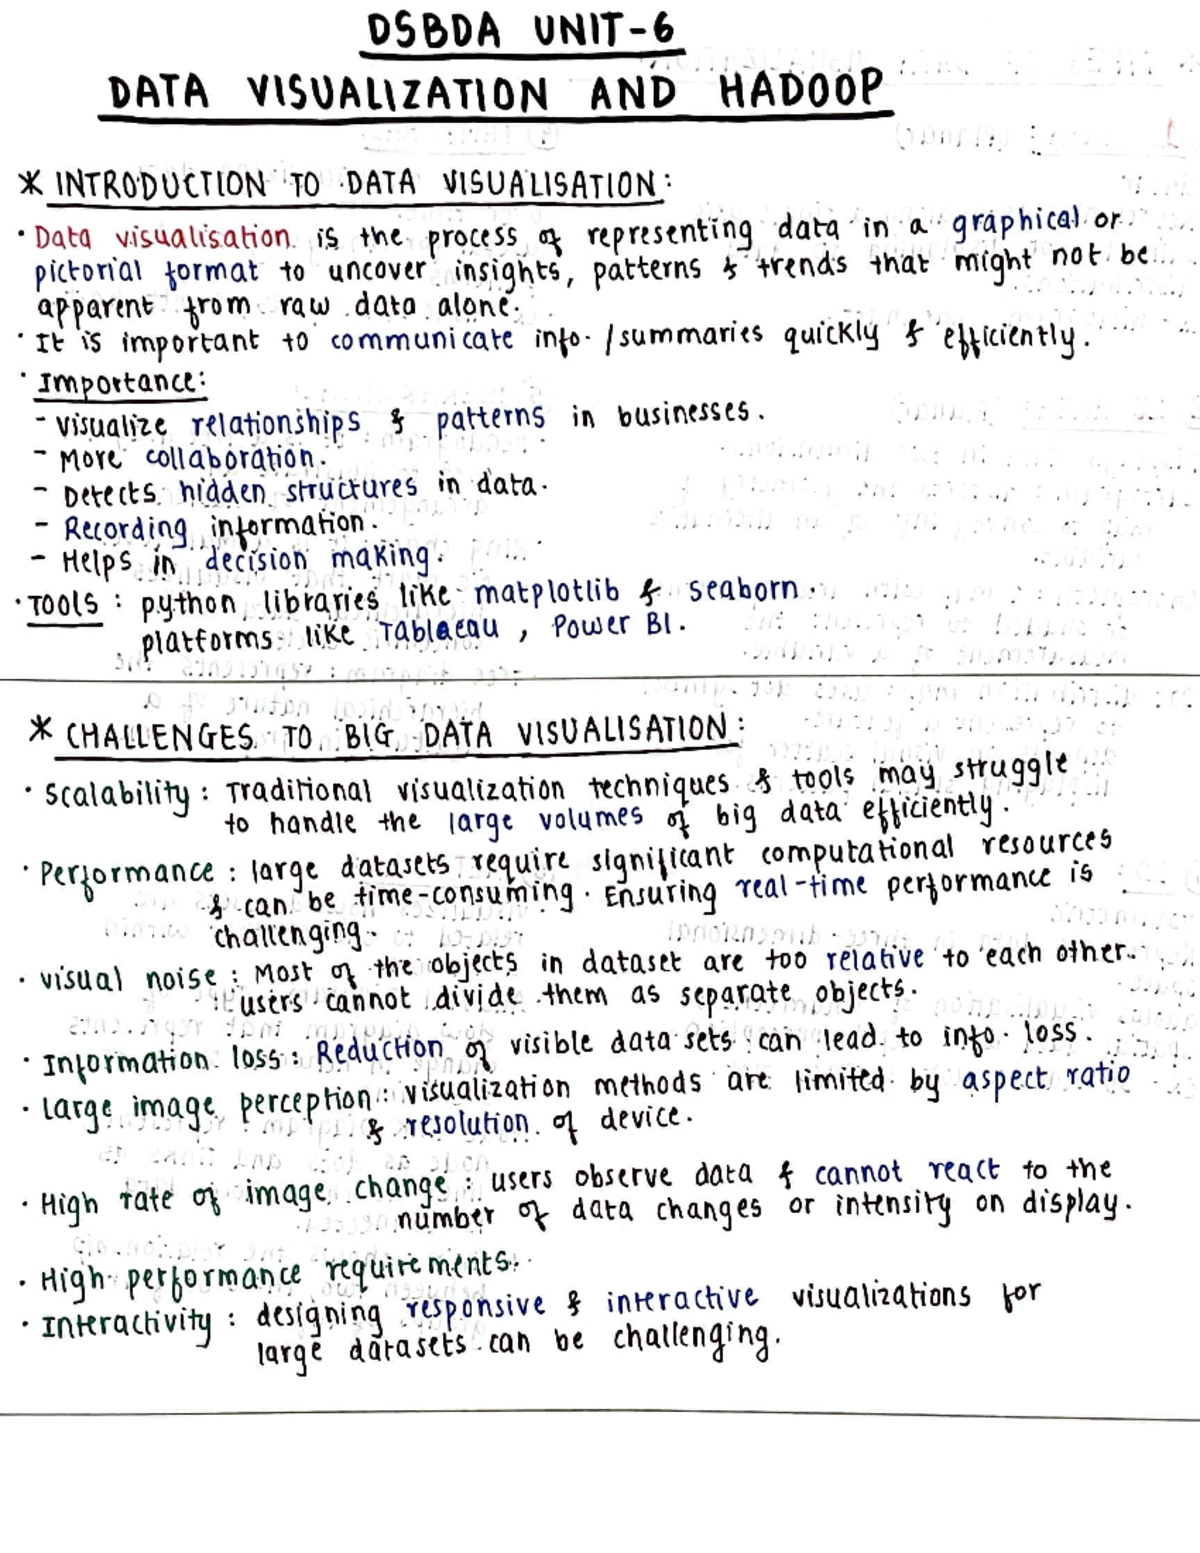 DSBDA UNIT-6
DATA VISUALIZATION AND HADOOP
* INTRODUCTION TO DATA VISUALISATION:
· Data visualisation is the process of representing data in a graphical or
pictorial format to uncover insights, patterns & trends that might not be
apparent from raw data alone.
· It is important to communicate info. /summaries quickly & efficiently.
· Importance:
- visualize relationships & patterns in businesses.
- More collaboration.
- Detects hidden structures in data.
- Recording information.
- Helps in decision making.
· TOOLS : python libraries like matplotlib & seaborn.
platforms like Tablaeau , Power BI.
* CHALLENGES TO BIG DATA VISUALISATION:
· Scalability : Traditional visualization techniques & tools may struggle
to handle the large volumes of big data efficiently.
· Performance : large datasets require significant computational resources
& can be time-consuming. Ensuring real-time performance is
challenging.
· visual noise : Most of the objects in dataset are too relative to each other.
users cannot divide them as separate objects.
· Information loss : Reduction of visible data sets can lead to info. loss.
· large image perception : visualization methods are limited by aspect ratio
& resolution of device.
· High rate of image change : users observe data & cannot react to the
number of data changes or intensity on display.
· High performance requirements.
· Interactivity : designing responsive & interactive visualizations for
large datasets can be challenging.